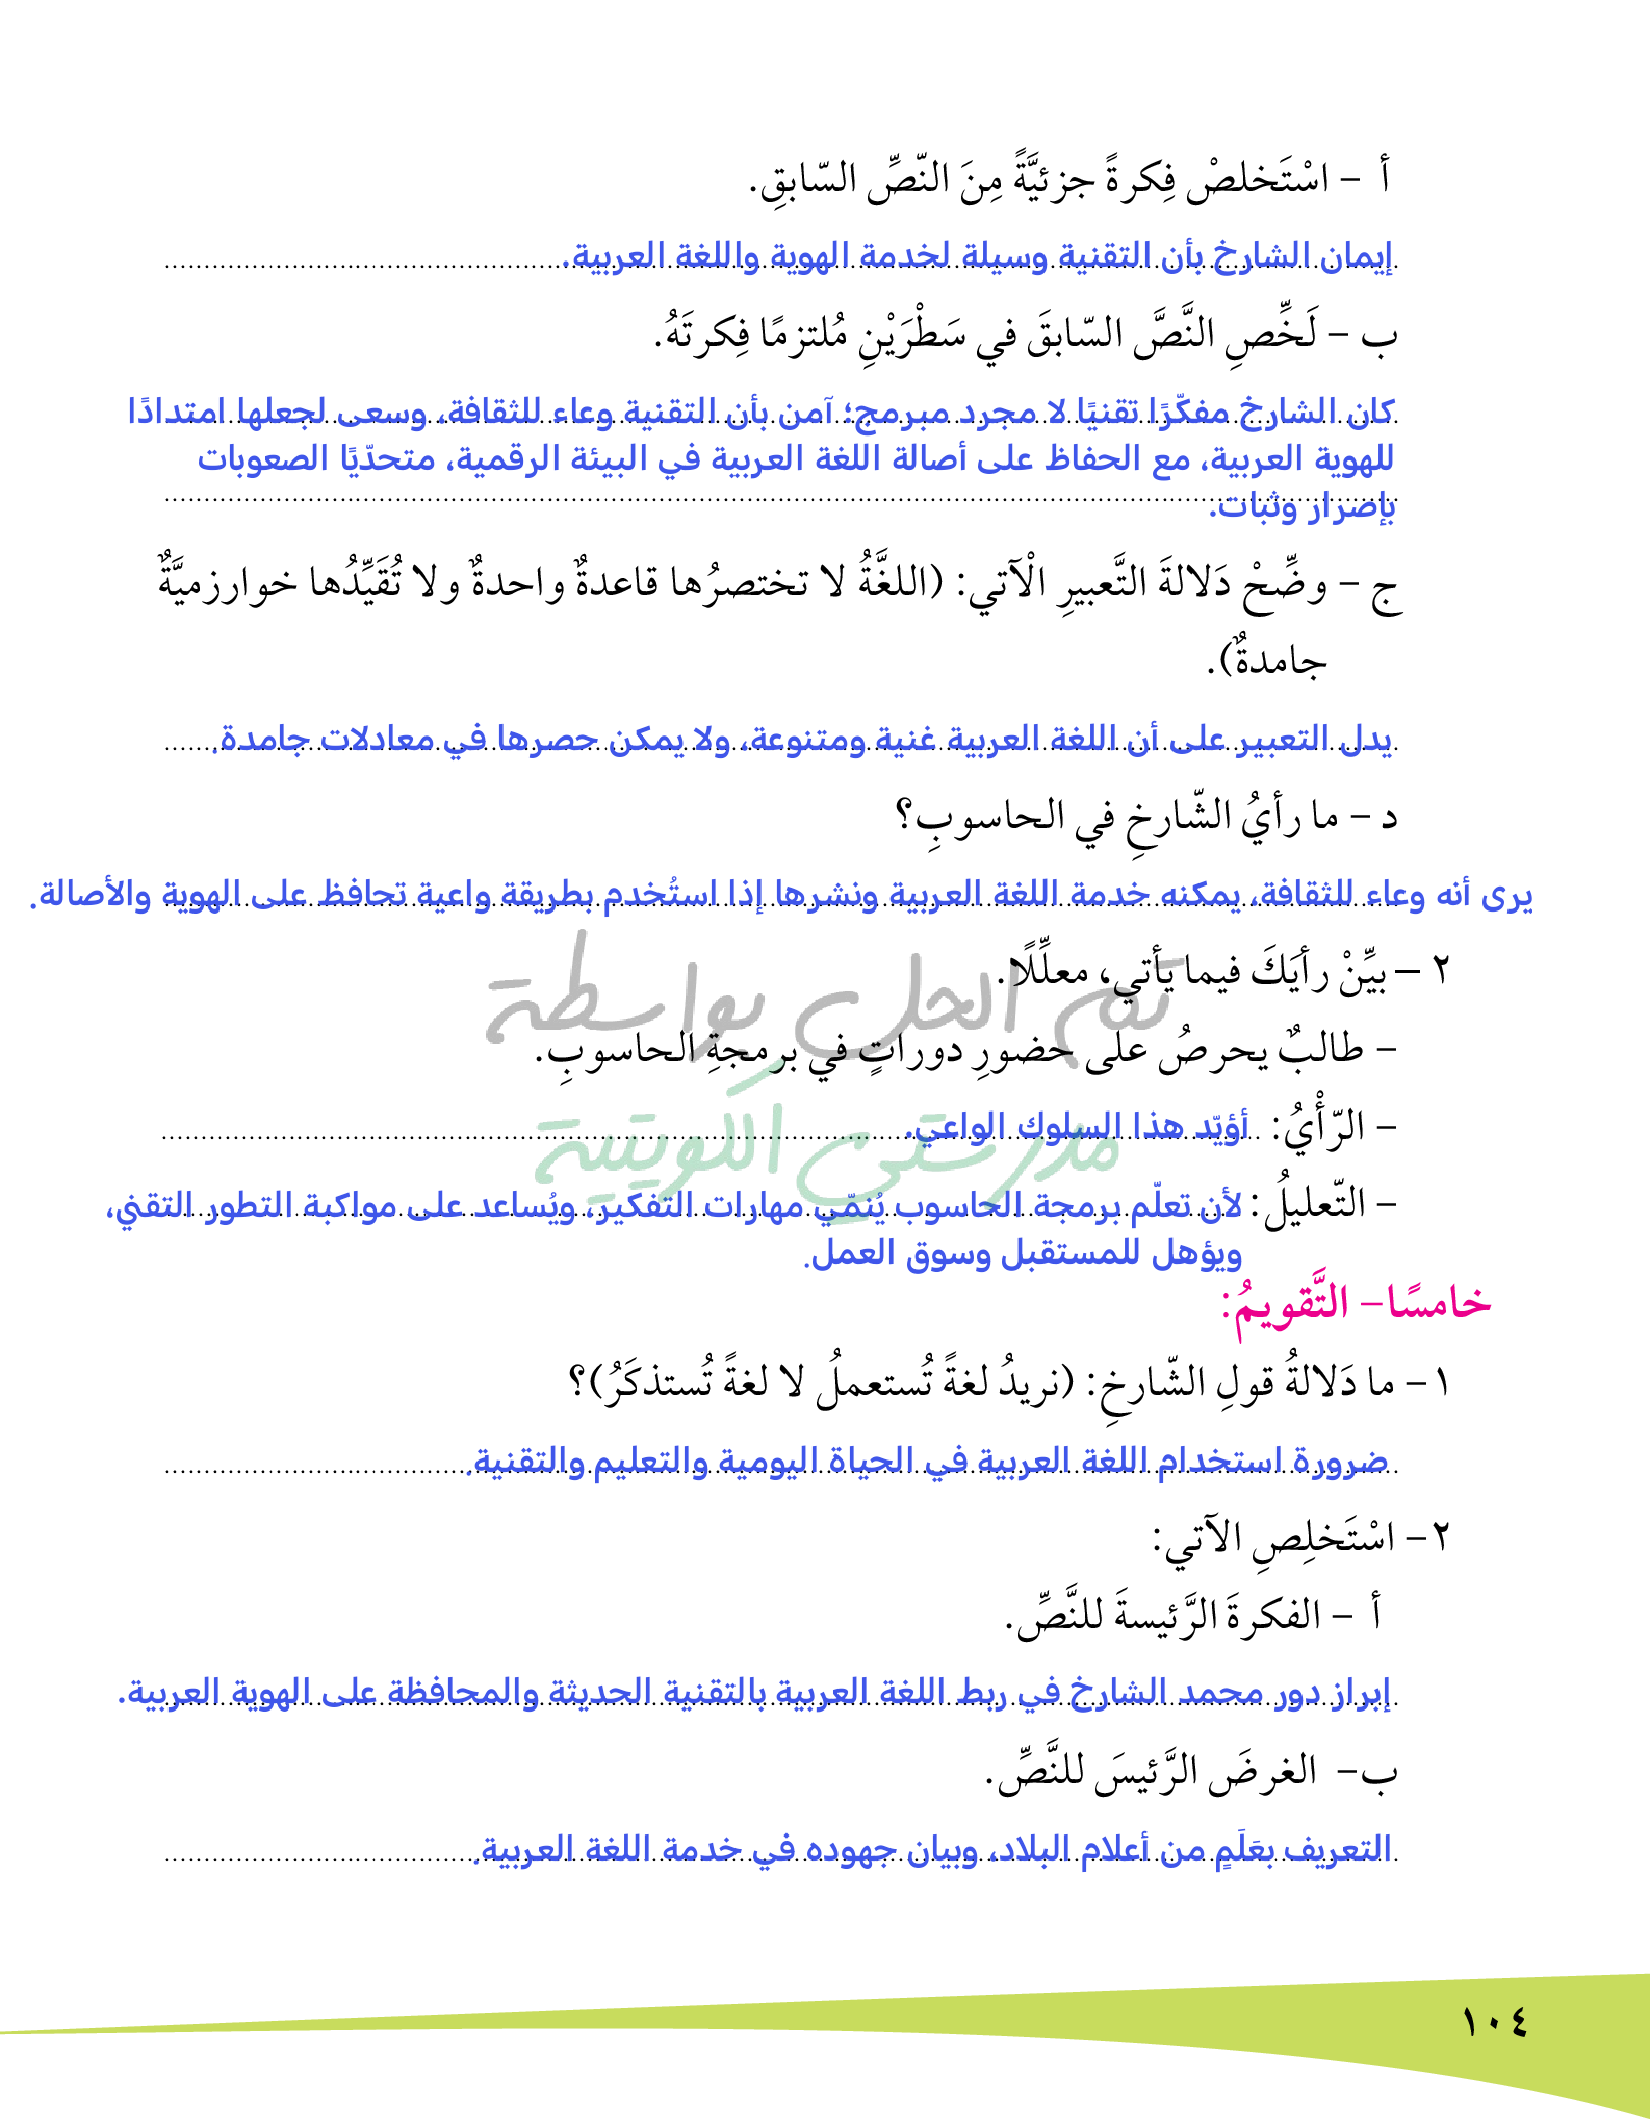 أ - اسْتَخلصْ فِكرةً جزئيَّةً مِنَ النّصِّ السّابقِ.
إيمان الشارخ بأن التقنية وسيلة لخدمة الهوية واللغة العربية.
ب - لَخِّصِ النَّصَّ السّابقَ في سَطْرَيْنِ مُلتزمًا فِكرتَهُ.
كان الشارخ مفكّرًا تقنيًا لا مجرد مبرمج؛ آمن بأن التقنية وعاء للثقافة، وسعى لجعلها امتدادًا
للهوية العربية، مع الحفاظ على أصالة اللغة العربية في البيئة الرقمية، متحدّيًا الصعوبات
بإصرار وثبات.
ج - وضِّحْ دَلالةَ التَّعبيرِ الْآتي: (اللغَّةُ لا تختصرُها قاعدةٌ واحدةٌ ولا تُقَيِّدُها خوارزميَّةٌ
جامدةٌ).
يدل التعبير على أن اللغة العربية غنية ومتنوعة، ولا يمكن حصرها في معادلات جامدة.
د - ما رأيُ الشّارخِ في الحاسوبِ؟
يرى أنه وعاء للثقافة، يمكنه خدمة اللغة العربية ونشرها إذا استُخدم بطريقة واعية تحافظ على الهوية والأصالة.
٢ - بيِّنْ رأيَكَ فيما يأتي، معلِّلًا.
تم الحل بواسطة
- طالبٌ يحرصُ على حضورِ دوراتٍ في برمجةِ الحاسوبِ.
مدرستي الكويتية
- الرّأْيُ: أؤيّد هذا السلوك الواعي.
- التّعليلُ: لأن تعلّم برمجة الحاسوب يُنمّي مهارات التفكير، ويُساعد على مواكبة التطور التقني،
ويؤهل للمستقبل وسوق العمل.
خامسًا- التَّقويمُ:
١- ما دَلالةُ قولِ الشّارخِ: (نريدُ لغةً تُستعملُ لا لغةً تُستذكَرُ)؟
ضرورة استخدام اللغة العربية في الحياة اليومية والتعليم والتقنية.
٢- اسْتَخلِصِ الآتي:
أ - الفكرةَ الرَّئيسةَ للنَّصِّ.
إبراز دور محمد الشارخ في ربط اللغة العربية بالتقنية الحديثة والمحافظة على الهوية العربية.
ب- الغرضَ الرَّئيسَ للنَّصِّ.
التعريف بعَلَمٍ من أعلام البلاد، وبيان جهوده في خدمة اللغة العربية.
١٠٤